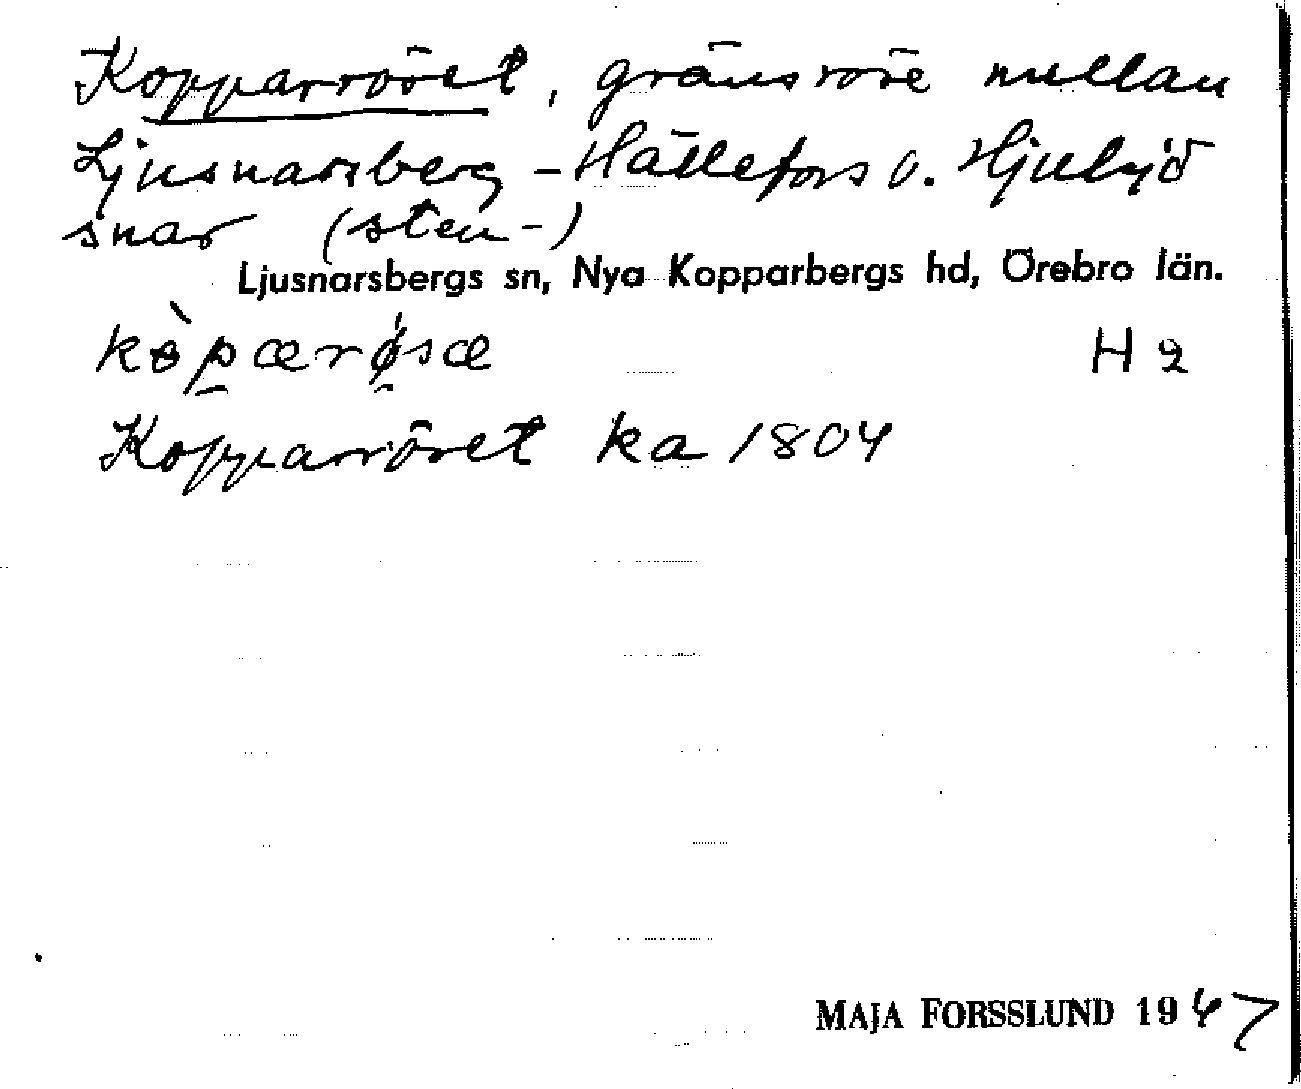 Kopparröret, gränsröre mellan
Ljusnarsberg – Hällefors o. Hjulsjö
snar (sten-)
Ljusnarsbergs sn, Nya Kopparbergs hd, Örebro län.
H 2
Kopparröret ka 1804
MAJA FORSSLUND 1947